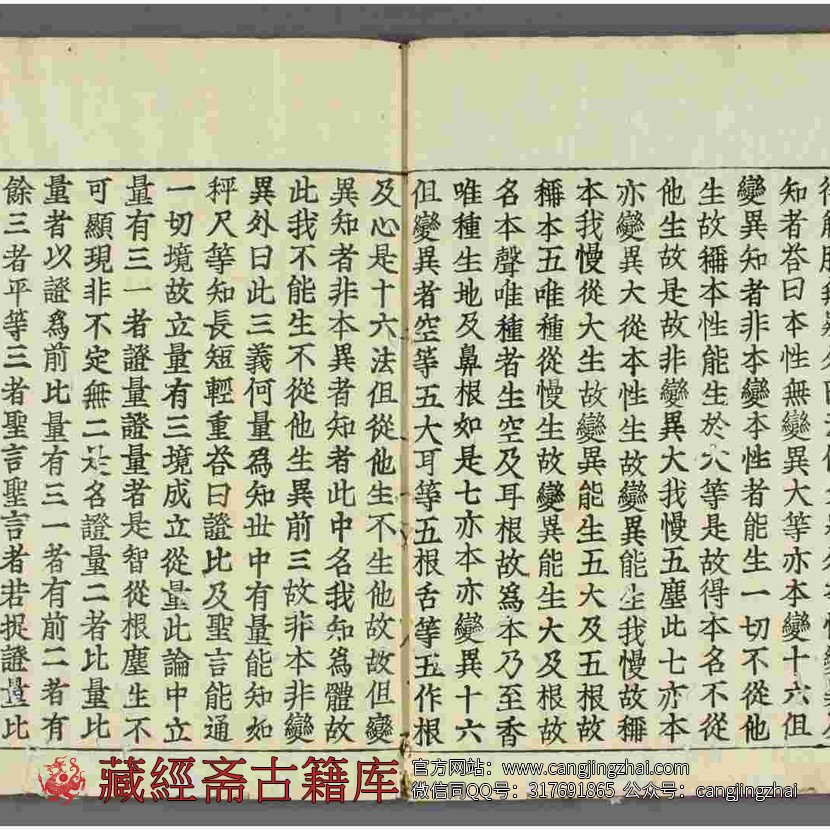 知者荅曰本性無變異大等亦本變十六但
變異知者非本變本性者能生一切不從他
生故稱本性能生於大等是故得本名不從
他生故是故非變異大我慢五塵此七亦本
亦變異大從本性生故變異能生我慢故稱
本我慢從大生故變異能生五大及五根故
稱本五唯種從慢生故變異能生大及根故
名本聲唯種者生空及耳根故爲本乃至香
唯種生地及鼻根如是七亦本亦變異十六
但變異者空等五大耳等五根舌等五作根
及心是十六法但從他生不生他故故但變
異知者非本異者知者此中名我知爲體故
此我不能生不從他生異前三故非本非變
異外曰此三義何量爲知世中有量能知如
秤尺等知長短輕重荅曰證比及聖言能通
一切境故立量有三境成立從量此論中立
量有三一者證量證量者是智從根塵生不
可顯現非不定無二是名證量二者比量比
量者以證爲前比量有三一者有前二者有
餘三者平等三者聖言聖言者若捉證量比
藏經斋古籍库
官方网站：www.cangjingzhai.com
微信同QQ号：317691865 公众号：cangjingzhai